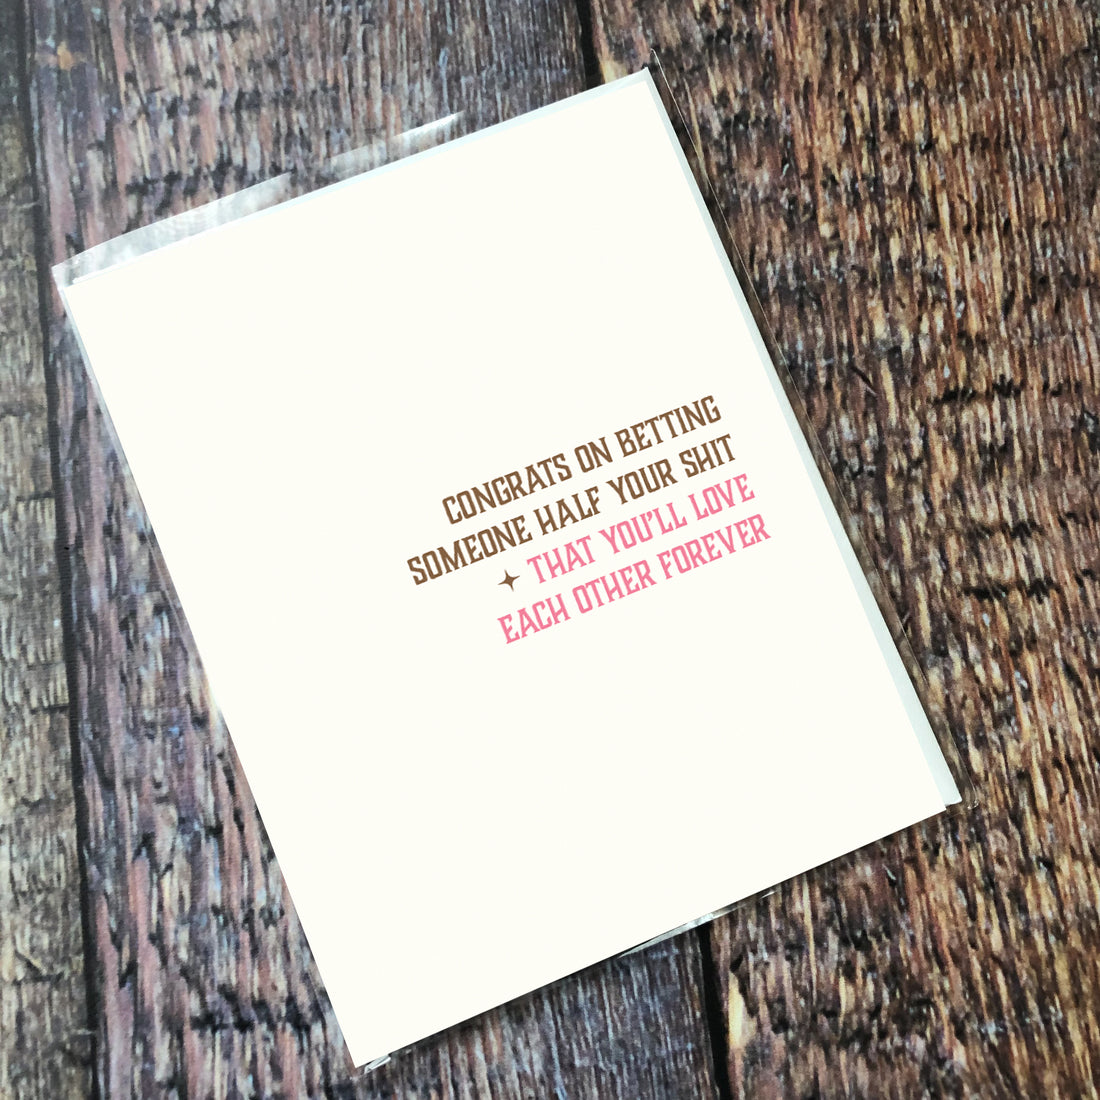 CONGRATS ON BETTING
SOMEONE HALF YOUR SHIT
THAT YOU'LL LOVE
EACH OTHER FOREVER